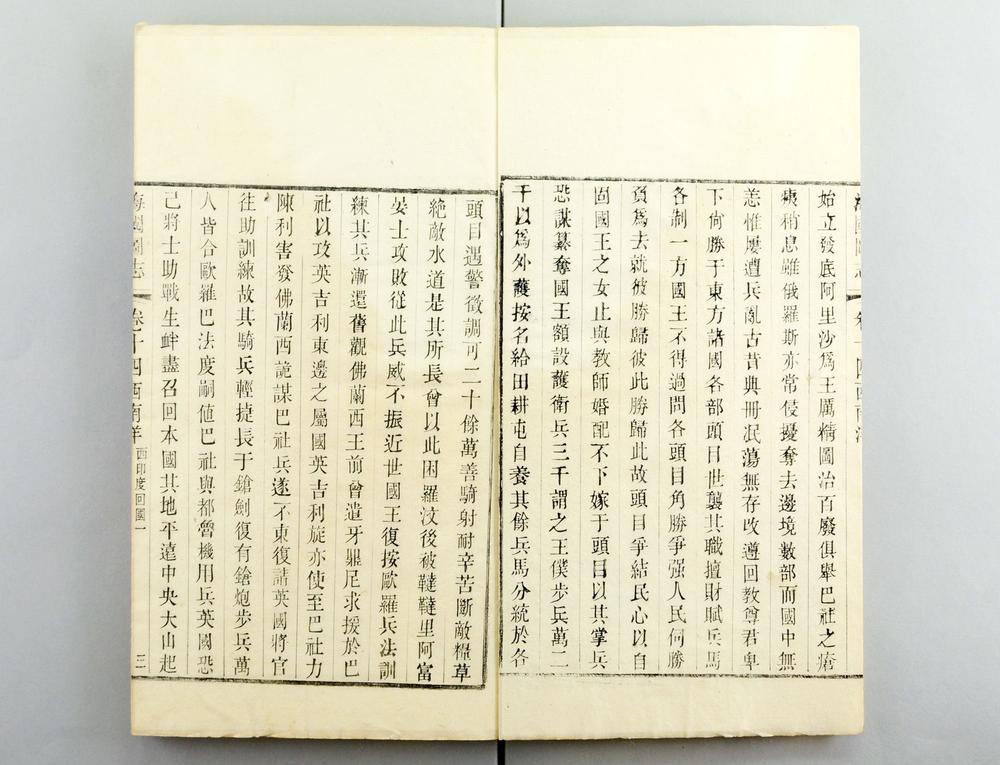 始立發底阿里沙爲王厲精圖治百廢俱舉巴社之瘡
痍稍息雖俄羅斯亦常侵擾奪去邊境數部而國中無
恙惟屢遭兵亂古昔典冊泯蕩無存改遵回教尊君卑
下尙勝于東方諸國各部頭目世襲其職擅財賦兵馬
各制一方國王不得過問各頭目角勝爭强人民伺勝
負爲去就彼勝歸彼此勝歸此故頭目爭結民心以自
固國王之女止與教師婚配不下嫁于頭目以其掌兵
恐謀篡奪國王額設護衛兵三千謂之王僕步兵萬二
千以爲外護按名給田耕屯自養其餘兵馬分統於各
頭目遇警徵調可二十餘萬善騎射耐辛苦斷敵糧草
絶敵水道是其所長曾以此困羅汶後被韃韃里阿富
晏士攻敗從此兵威不振近世國王復按歐羅兵法訓
練其兵漸還舊觀佛蘭西王前曾遣牙郞尼求援於巴
社以攻英吉利東邊之屬國英吉利旋亦使至巴社力
陳利害發佛蘭西詭謀巴社兵遂不東復請英國將官
往助訓練故其騎兵輕捷長于鎗劍復有鎗炮步兵萬
人皆合歐羅巴法度嗣値巴社與都魯機用兵英國恐
己將士助戰生衅盡召回本國其地平遠中央大山起
海國圖志 卷十四西南洋 西印度回國一 三